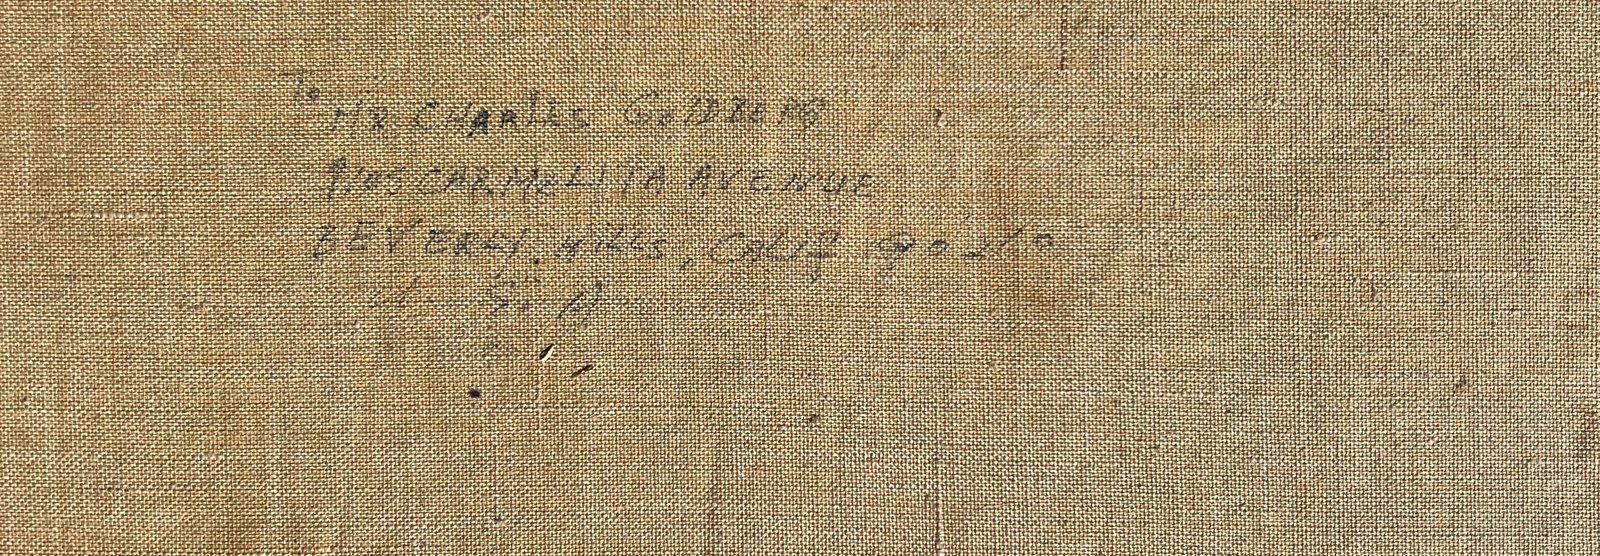 To
MR CHARLES GOLDBERG
9105 CARMELITA AVENUE
BEVERLY HILLS, CALIF 90210